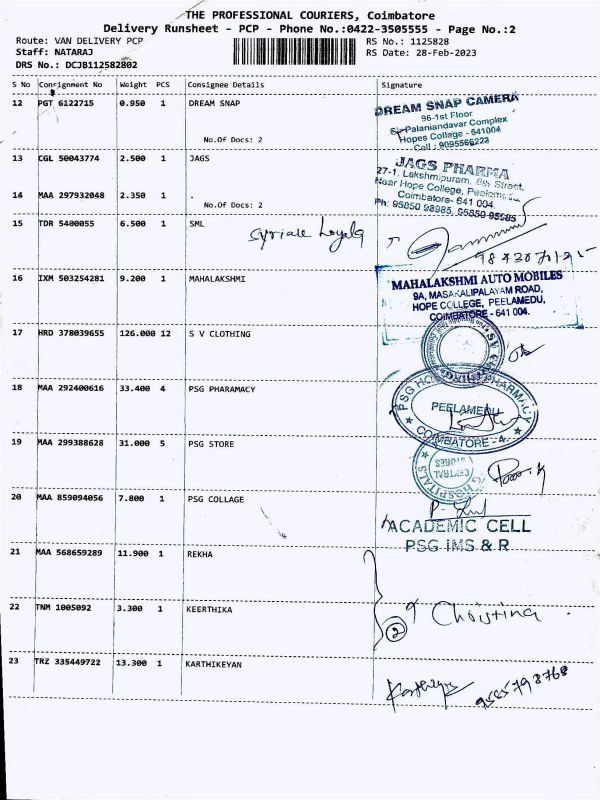 THE PROFESSIONAL COURIERS, Coimbatore
Delivery Runsheet - PCP - Phone No.:0422-3505555 - Page No.:2
Route: VAN DELIVERY PCP
RS No.: 1125828
Staff: NATARAJ
RS Date: 28-Feb-2023
DRS No.: DCJB112582802
S No Consignment No Weight PCS Consignee Details Signature
12 PGT 6122715 0.950 1 DREAM SNAP
No.Of Docs: 2
DREAM SNAP CAMERA
96-1st Floor
Palaniandavar Complex
Hopes College - 641004
Cell : 9095566223
13 CGL 50043774 2.500 1 JAGS
JAGS PHARMA
27-1, Lakshmipuram, 6th Street,
Near Hope College, Peelamedu,
Coimbatore- 641 004.
Ph: 95850 98985, 95850 95985
14 MAA 297932048 2.350 1 .
No.Of Docs: 2
15 TDR 5400055 6.500 1 SML
16 IXM 503254281 9.200 1 MAHALAKSHMI
MAHALAKSHMI AUTO MOBILES
9A, MASAKALIPALAYAM ROAD,
HOPE COLLEGE, PEELAMEDU,
COIMBATORE - 641 004.
17 HRD 378039655 126.000 12 S V CLOTHING
18 MAA 292400616 33.400 4 PSG PHARAMACY
PSG HOSPITALS PHARMACY
PEELAMEDU
COIMBATORE - 4
19 MAA 299388628 31.000 5 PSG STORE
HOSPITALS
CENTRAL
STORES
20 MAA 859094056 7.800 1 PSG COLLAGE
ACADEMIC CELL
PSG IMS & R
21 MAA 568659289 11.900 1 REKHA
22 TNM 1005092 3.300 1 KEERTHIKA
2 Christina
23 TRZ 335449722 13.300 1 KARTHIKEYAN